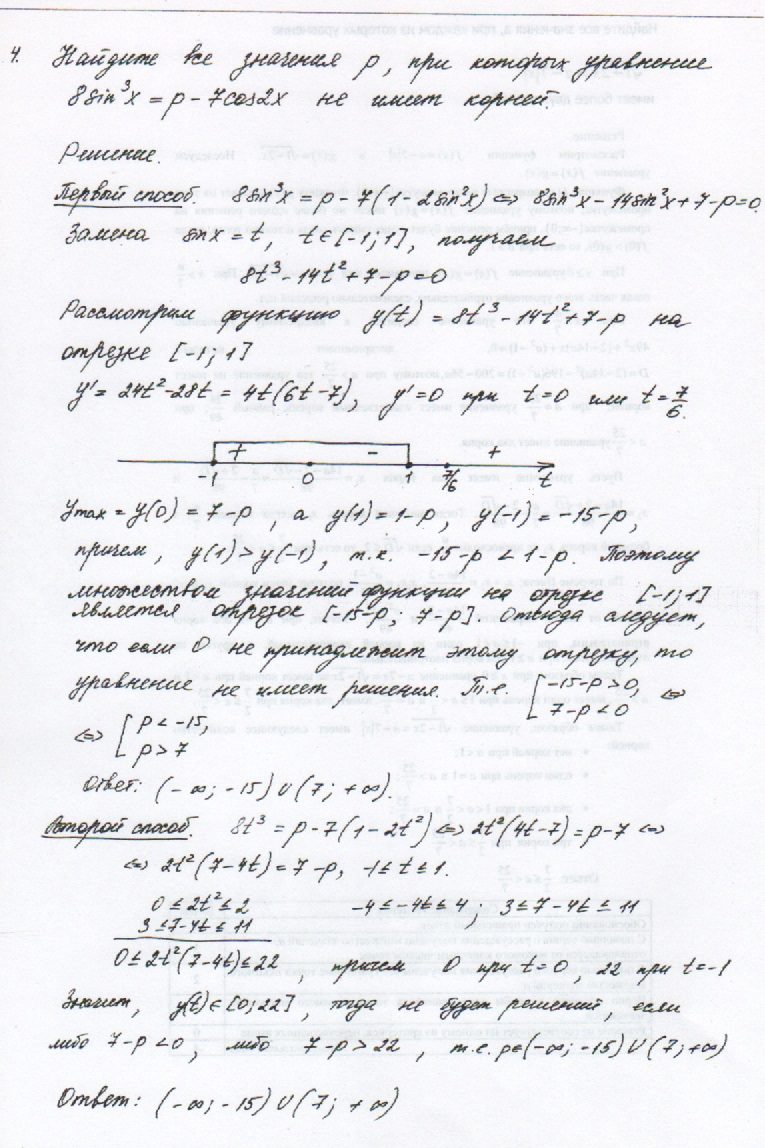 4. Найдите все значения p, при которых уравнение
8sin³x = p - 7cos2x не имеет корней.
Решение.
Первый способ. 8sin³x = p - 7(1 - 2sin²x) ⇔ 8sin³x - 14sin²x + 7 - p = 0.
Замена sinx = t, t∈[-1; 1], получаем
8t³ - 14t² + 7 - p = 0
Рассмотрим функцию y(t) = 8t³ - 14t² + 7 - p на
отрезке [-1; 1]
y' = 24t² - 28t = 4t(6t - 7), y' = 0 при t = 0 или t = 7/6.
+ - +
-1 0 1 7/6 t
ymax = y(0) = 7 - p, а y(1) = 1 - p, y(-1) = -15 - p,
причем, y(1) > y(-1), т.к. -15 - p < 1 - p. Поэтому
множеством значений функции на орезке [-1; 1]
является отрезок [-15 - p; 7 - p]. Отсюда следует,
что если 0 не принадлежит этому отрезку, то
уравнение не имеет решения. Т.е. [ -15 - p > 0, 7 - p < 0 ⇔
⇔ [ p < -15, p > 7
Ответ: (-∞; -15) ∪ (7; +∞).
Второй способ. 8t³ = p - 7(1 - 2t²) ⇔ 2t²(4t - 7) = p - 7 ⇔
⇔ 2t²(7 - 4t) = 7 - p, -1 ≤ t ≤ 1.
0 ≤ 2t² ≤ 2 -4 ≤ -4t ≤ 4; 3 ≤ 7 - 4t ≤ 11
3 ≤ 7 - 4t ≤ 11
0 ≤ 2t²(7 - 4t) ≤ 22, причем 0 при t = 0, 22 при t = -1
Значит, y(t) ∈ [0; 22], тогда не будет решений, если
либо 7 - p < 0, либо 7 - p > 22, т.е. p∈(-∞; -15) ∪ (7; +∞)
Ответ: (-∞; -15) ∪ (7; +∞)